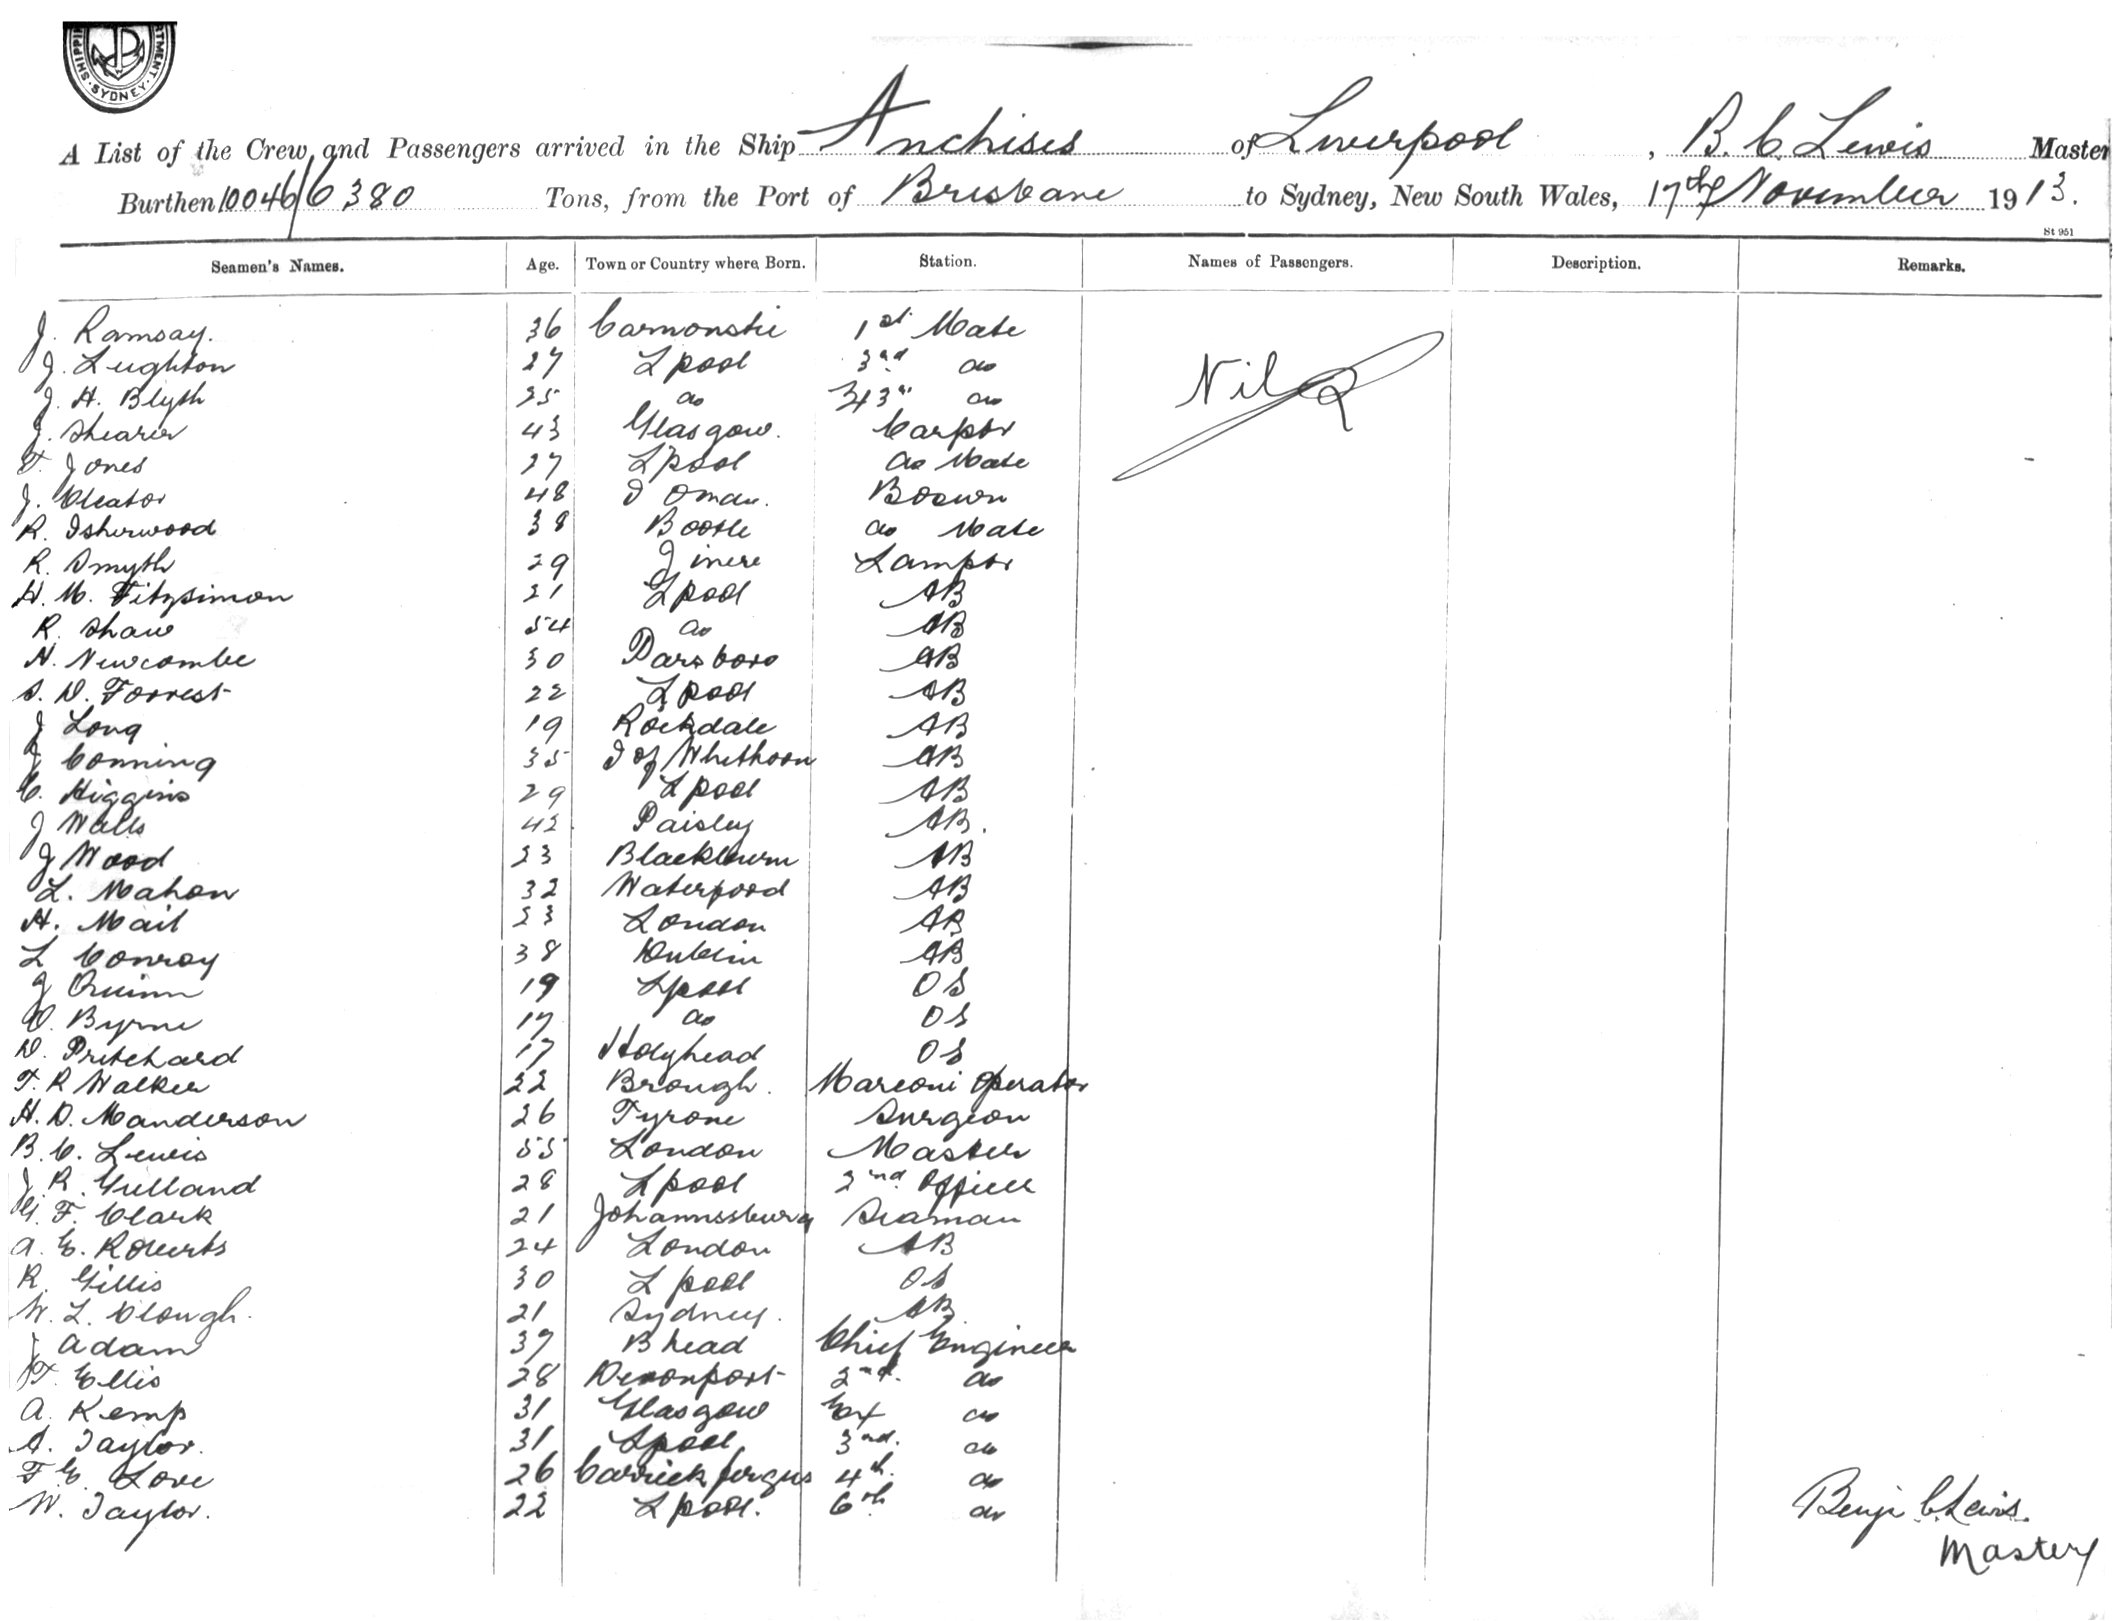 SHIPPING DEPARTMENT SYDNEY
A List of the Crew and Passengers arrived in the Ship Anchises of Liverpool, B. C. Lewis Master
Burthen 10046/6380 Tons, from the Port of Brisbane to Sydney, New South Wales, 17th November 1913.
St 951
Seamen's Names. Age. Town or Country where Born. Station. Names of Passengers. Description. Remarks.
J. Ramsay. 36 Carnoustie 1st Mate
J. Leighton 27 Lpool 3rd do
J. H. Blyth 25 do do
Nil
J. Shearer 43 Glasgow. Carptr
T. Jones 27 Lpool do Mate
J. Cleator 48 I Oman. Bosun
R. Isherwood 38 Bootle do Mate
R. Smyth 29 Lamptr
H. M. Fitzsimon 21 Lpool AB
R. Shaw 54 do AB
N. Newcombe 30 Parsboro AB
S. D. Forrest 22 Lpool AB
J Long 19 Rockdale AB
J Conning 35 I of Whithorn AB
C. Higgins 29 Lpool AB
J Walls 42 Paisley AB.
J Wood 23 Blackburn AB
L. Mahon 32 Waterford AB
H. Mail 23 London AB
L Conroy 38 Dublin AB
J Quinn 19 Lpool OS
D. Byrne 17 do OS
D. Pritchard 17 Holyhead OS
T. R Walker 22 Brough. Marconi Operator
H. D. Manderson 26 Tyrone Surgeon
B. C. Lewis 55 London Master
J R. Gulland 28 Lpool 2nd Officer
G. F. Clark 21 Johannssburg Seaman
A. E. Roberts 24 London AB
R. Gillis 30 Lpool OS
W. L. Clough. 21 Sydney. AB
J Adam 37 B head Chief Engineer
T. Ellis 28 Devonport 2nd. do
A. Kemp 31 Glasgow Ext do
A. Taylor. 31 Lpool 3rd. do
F E. Love 26 Carrickfergus 4th. do
W. Taylor. 22 Lpool. 6th do
Benj. C. Lewis.
Master